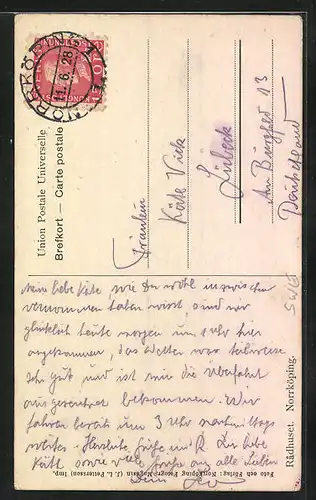 NORRKÖPING 1
11. 6. 28
Union Postale Universelle
Brefkort — Carte postale
Fräulein
Käte Vick
Lübeck
Am Burgfeld 13
Deutschland
Meine liebe Käte, wie Du wohl inzwischen
vernommen haben wirst, sind wir
glücklich heute morgen um 1 Uhr hier
angekommen, das Wetter war teilweise
sehr gut und ist mir die Überfahrt
ausgezeichnet bekommen. Wir
fahren bereits um 3 Uhr nachmittags
weiter. Herzliche Grüße
sowie viele Grüße an alle Lieben
Dein
Rådhuset. Norrköping.
Foto och Förlag: Norrköping (J. L. Pettersson) Imp.